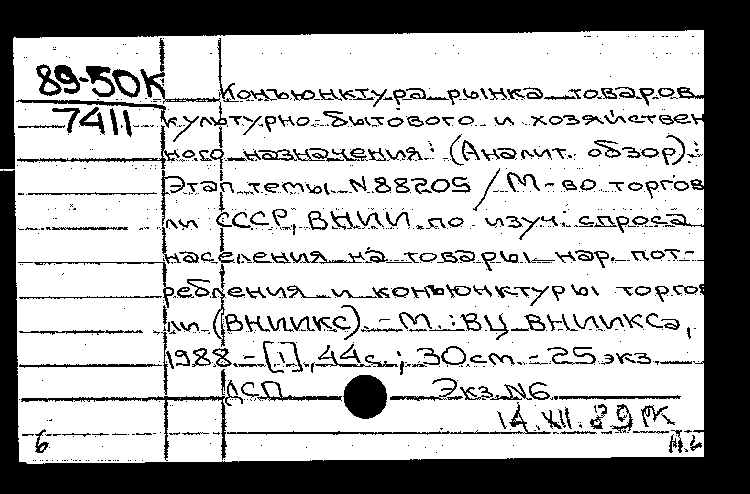 89-50К
7411
Конъюнктура рынка товаров
культурно-бытового и хозяйствен
ного назначения: (Аналит. обзор).:
Этап темы N88205 / М-во торгов
ли СССР, ВНИИ по изуч. спроса
населения на товары нар. пот-
ребления и конъюнктуры торгов
ли (ВНИИКС). - М.: ВЦ ВНИИКСа,
1988 - [1], 44с.; 30см - 25экз.
ДСП Экз. N6
14.XII.89
6